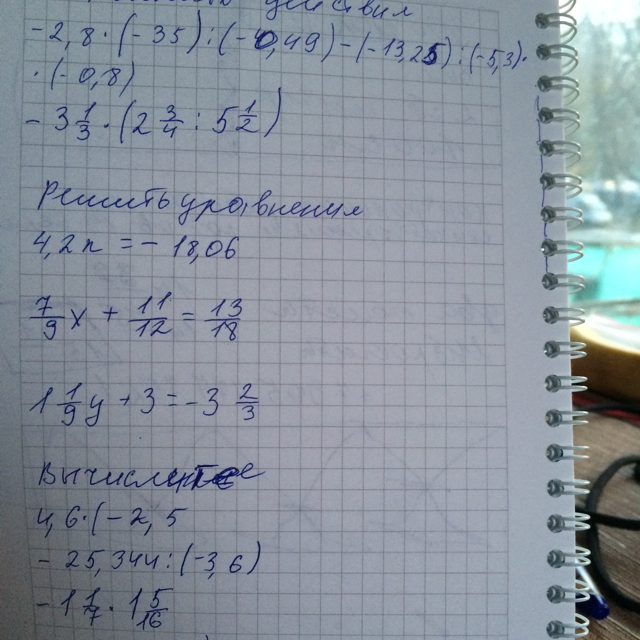 действия
-2,8·(-35):(-0,49)-(-13,25):(-5,3)·
·(-0,8)
-3 1/3·(2 3/4:5 1/2)
Решить уравнения
4,2n=-18,06
7/9x+11/12=13/18
1 1/9y+3=-3 2/3
Вычислите
4,6·(-2,5
-25,344:(-3,6)
-1 1/7·1 5/16